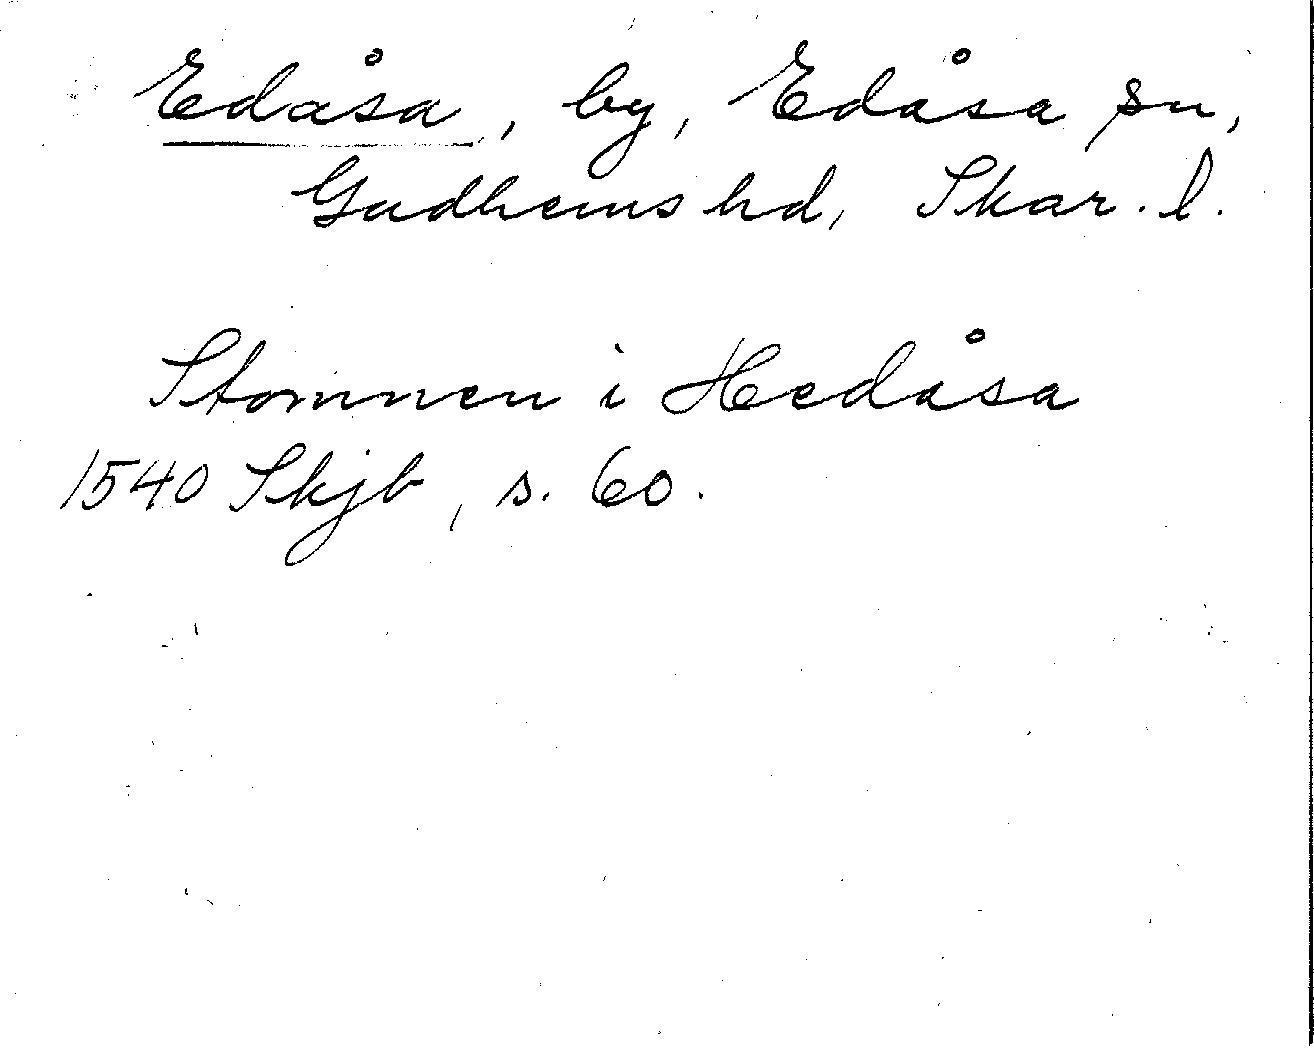 Edåsa, by, Edåsa sn,
Gudhems hd, Skar. l.
Stomnen i Hedåsa
1540 Skjb, s. 60.